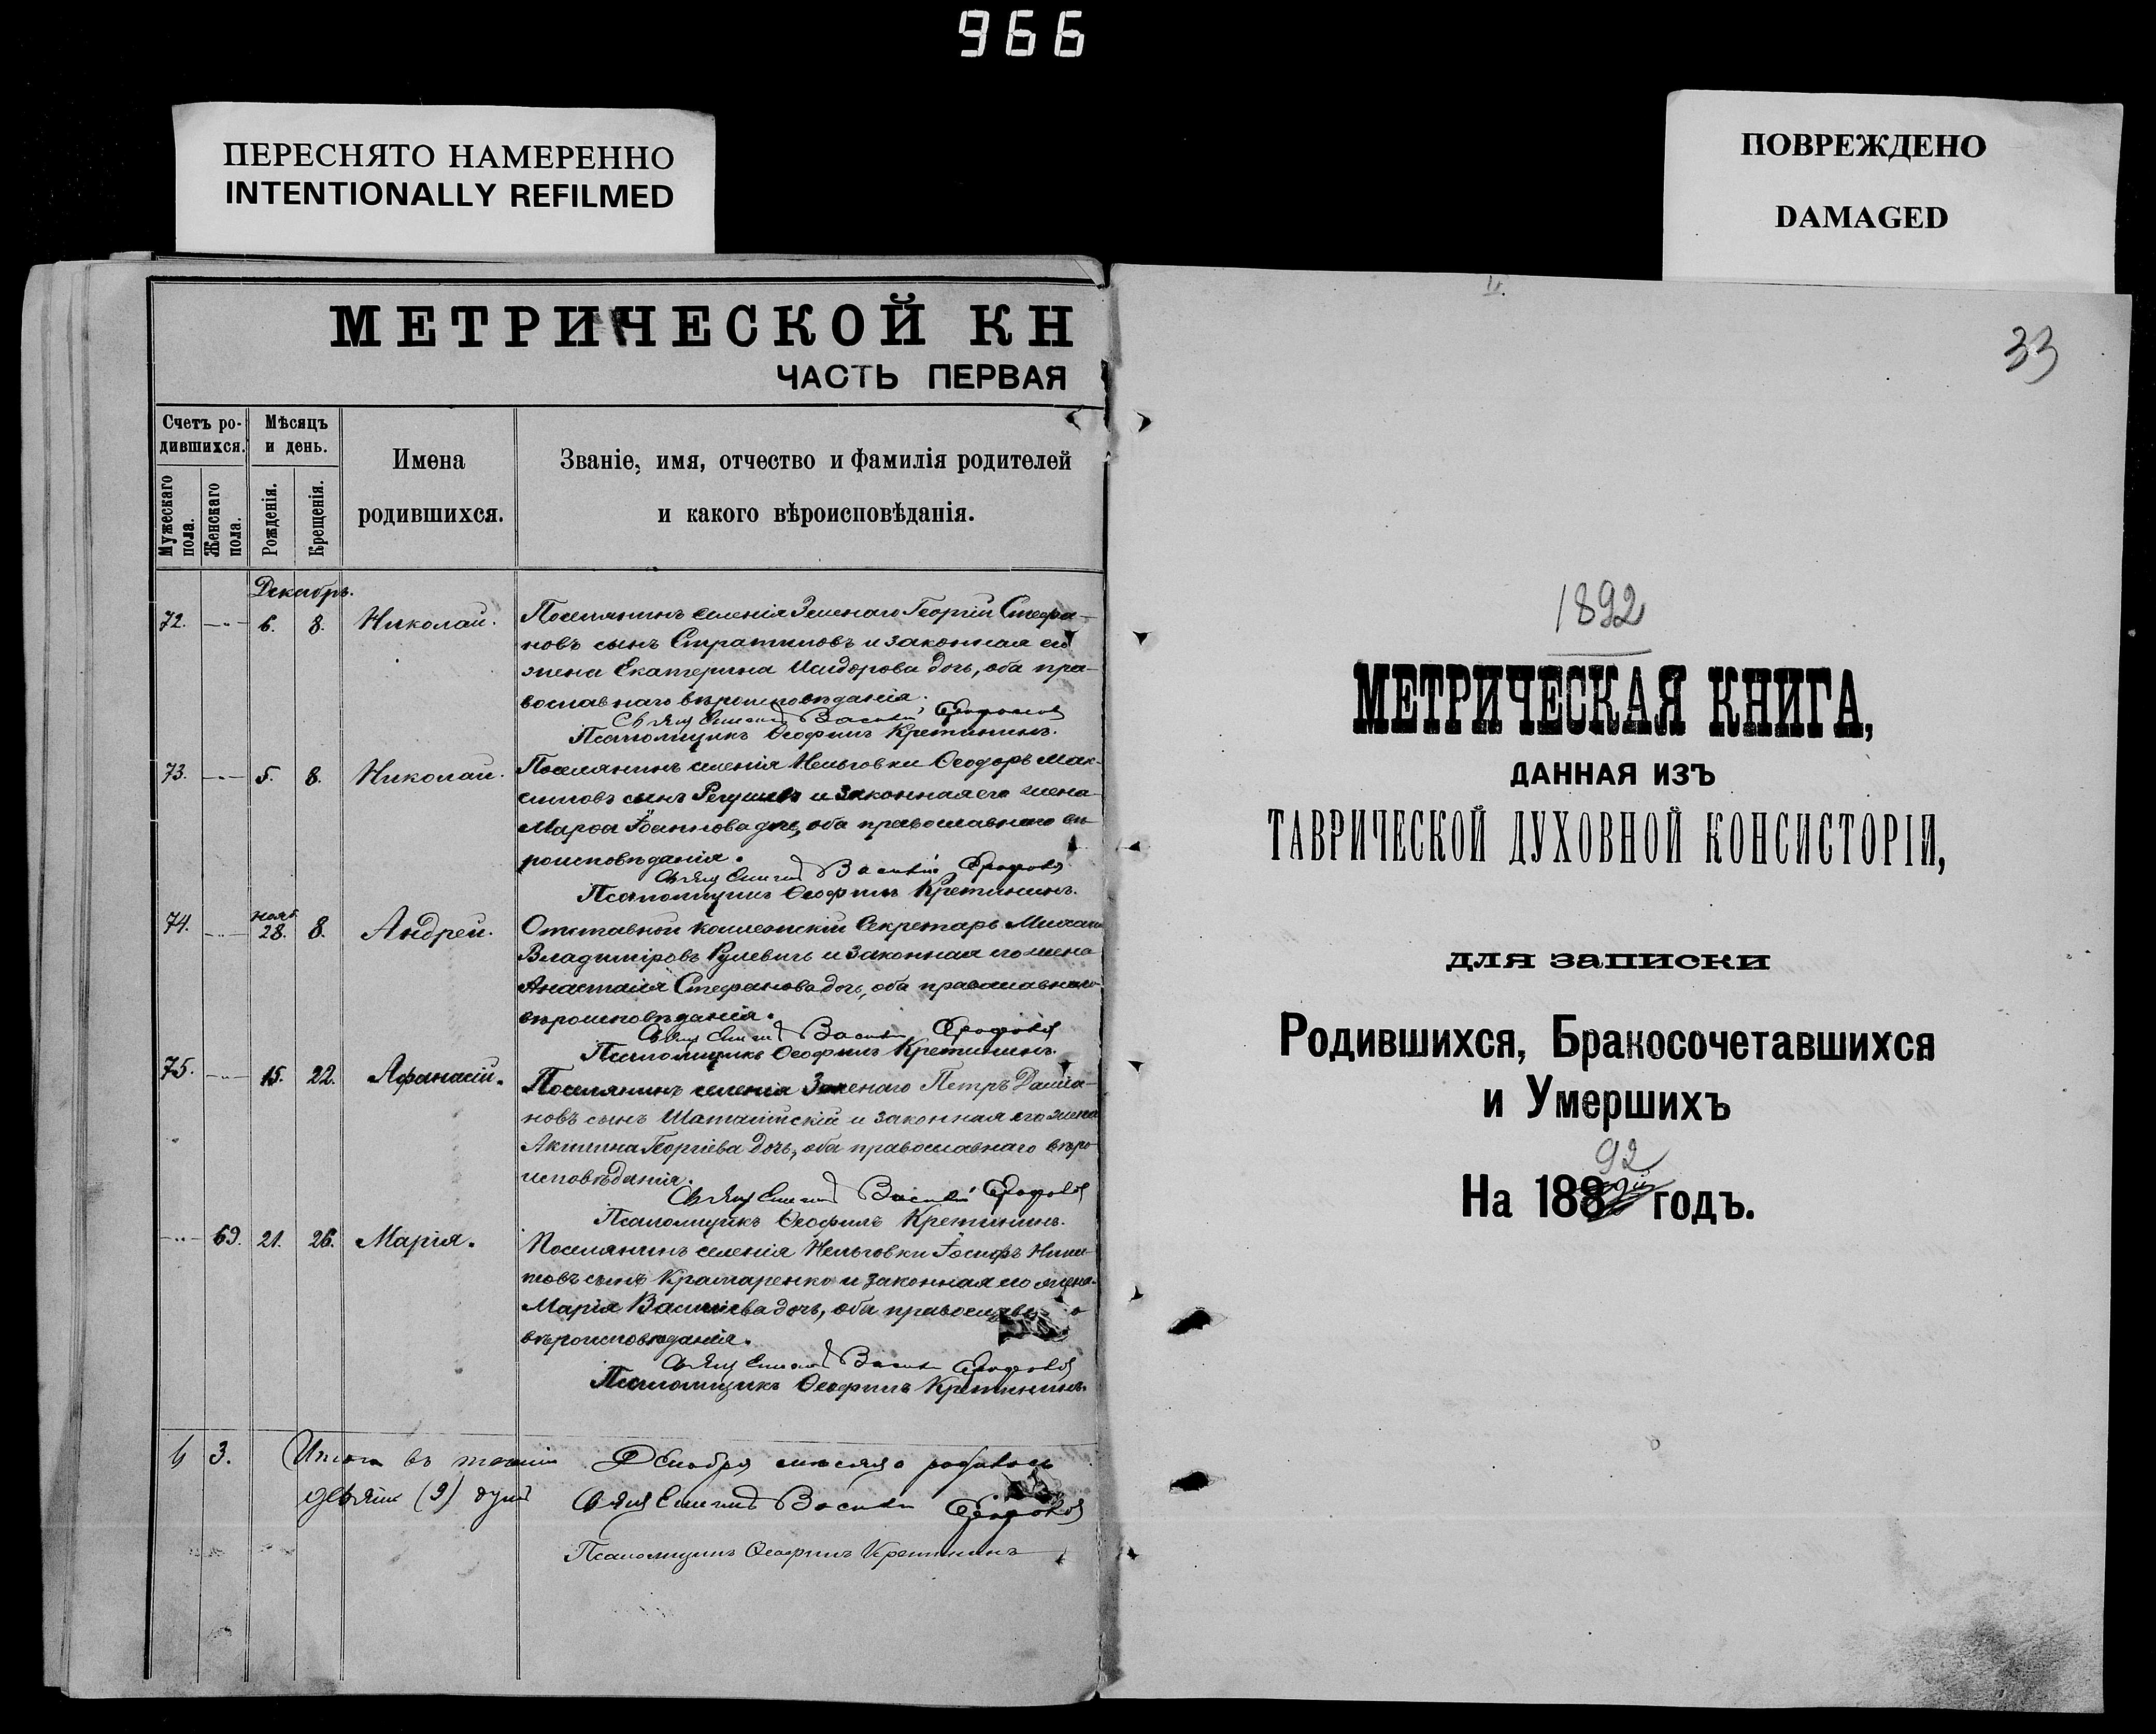 966
ПЕРЕСНЯТО НАМЕРЕННО
INTENTIONALLY REFILMED
ПОВРЕЖДЕНО
DAMAGED
МЕТРИЧЕСКОЙ КН
ЧАСТЬ ПЕРВАЯ
Счетъ ро-
дившихся.
Мужескаго пола.
Женскаго пола.
Мѣсяцъ
и день.
Рожденія.
Крещенія.
Имена
родившихся.
Званіе, имя, отчество и фамилія родителей
и какого вѣроисповѣданія.
Декабрь.
72. —"— 6. 8. Николай. Поселянинъ селенія Зеленаго Георгій Стефа-
новъ сынъ Стратиловъ и законная его
жена Екатерина Исидорова дочь, оба пра-
вославнаго вѣроисповѣданія.
Священникъ Василій
Псаломщикъ Ѳеофилъ Кретининъ.
73. —"— 5. 8. Николай. Поселянинъ селенія Нельговки Ѳеодоръ Мак-
симовъ сынъ и законная его жена
Марѳа Іоаннова дочь, оба православнаго вѣ-
роисповѣданія.
Священникъ Василій
Псаломщикъ Ѳеофилъ Кретининъ.
74. —"— нояб. 28. 8. Андрей. Отставной коллежскій секретарь Михаилъ
Владиміровъ Рулевичъ и законная его жена
Анастасія Стефанова дочь, оба православнаго
вѣроисповѣданія.
Священникъ Василій
Псаломщикъ Ѳеофилъ Кретининъ.
75. —"— 15. 22. Афанасій. Поселянинъ селенія Зеленаго Петръ Даміа-
новъ сынъ и законная его жена
Акилина Георгіева дочь, оба православнаго вѣро-
исповѣданія.
Священникъ Василій
Псаломщикъ Ѳеофилъ Кретининъ.
—"— 69. 21. 26. Марія. Поселянинъ селенія Нельговки Іосифъ Ники-
товъ сынъ Крамаренко и законная его жена
Марія Василіева дочь, оба православнаго
вѣроисповѣданія.
Священникъ Василій
Псаломщикъ Ѳеофилъ Кретининъ.
6 3. Итого въ теченіи Декабря мѣсяца родилось
девять (9) душъ Священникъ Василій
Псаломщикъ Ѳеофилъ Кретининъ
33
1892
МЕТРИЧЕСКАЯ КНИГА,
ДАННАЯ ИЗЪ
ТАВРИЧЕСКОЙ ДУХОВНОЙ КОНСИСТОРІИ,
для записки
Родившихся, Бракосочетавшихся
и Умершихъ
92
На 188 годъ.